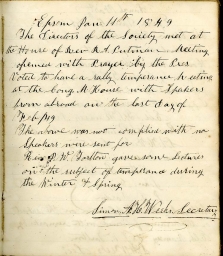 Epsom Jan 11th 1849
The Directors of the Society met at
the House of Rev R. A. Putnam. Meeting
opened with Prayer by the Pres
Voted to have a rally temperance Meeting
at the Cong. M. House with Speakers
from abroad on the last day of
Feb /49
The above was not complied with no
Speakers were sent for
Rev W. Tarlton gave some Lectures
on the subject of temperance during
the Winter & Spring
Secretary